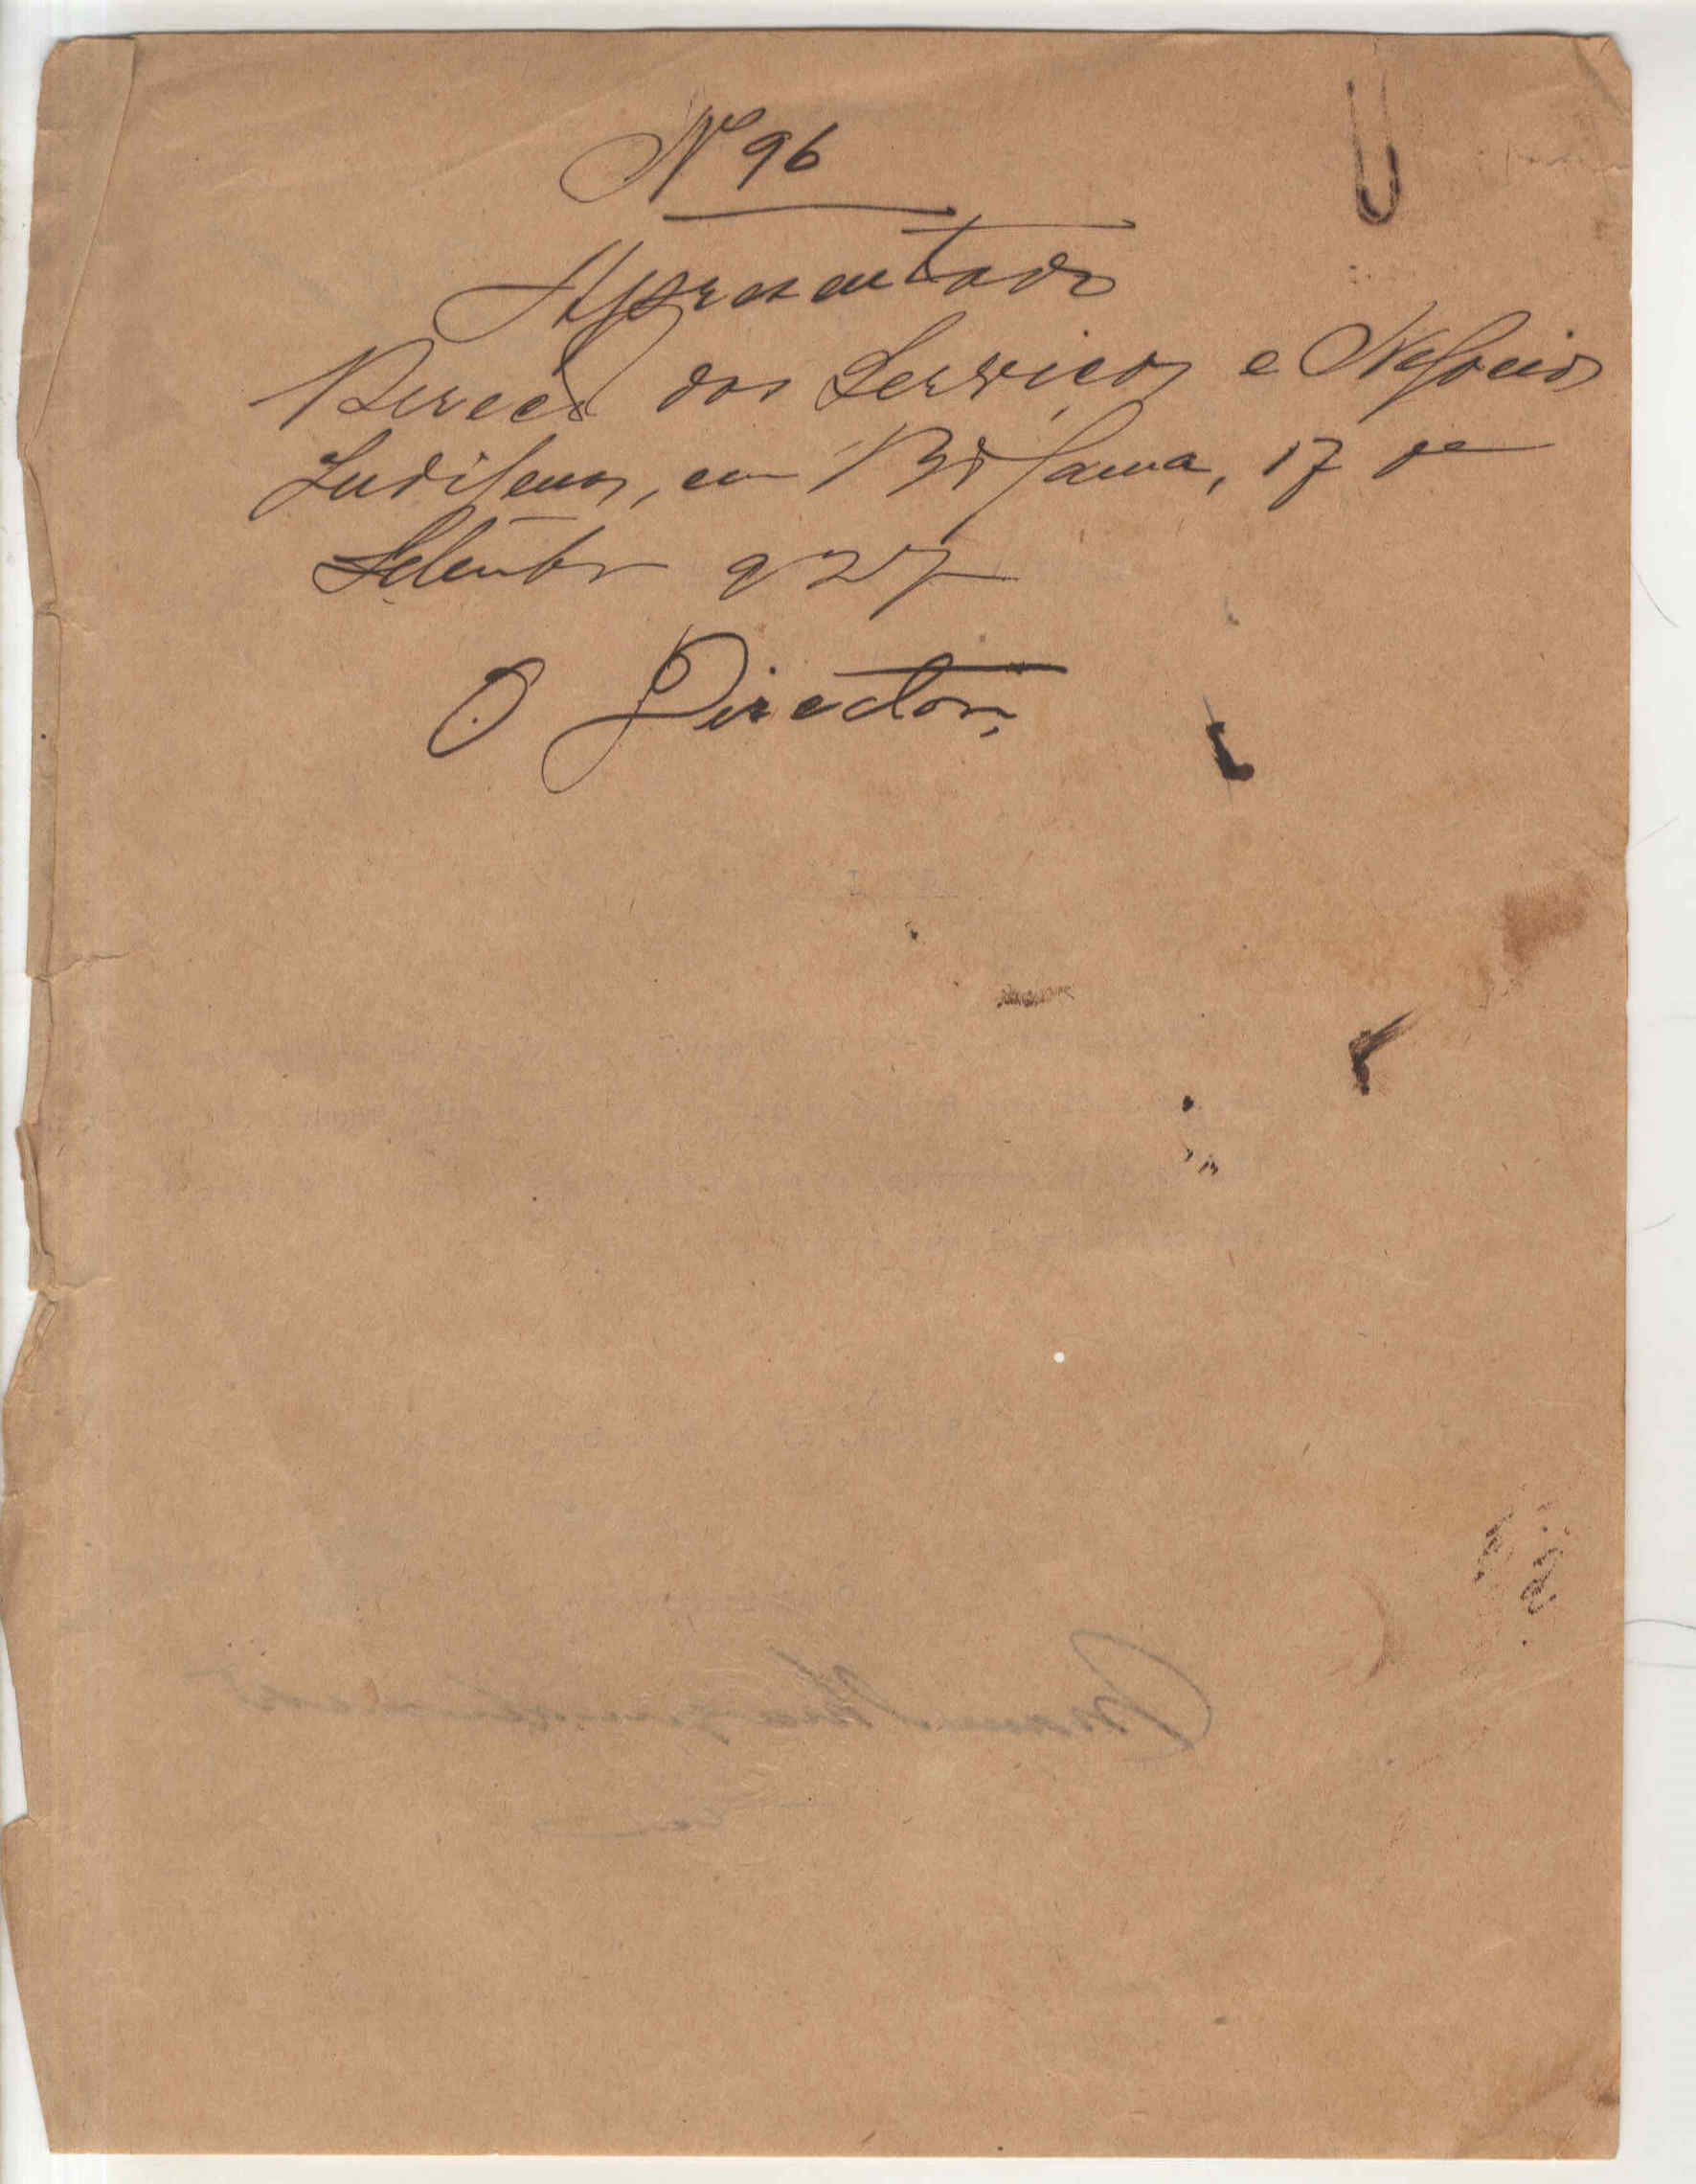 Nº 96
Apresentado
Direcç dos Serviços e Negocios
Indigenas, em Bolama, 17 de
Setembro 927
O Director,